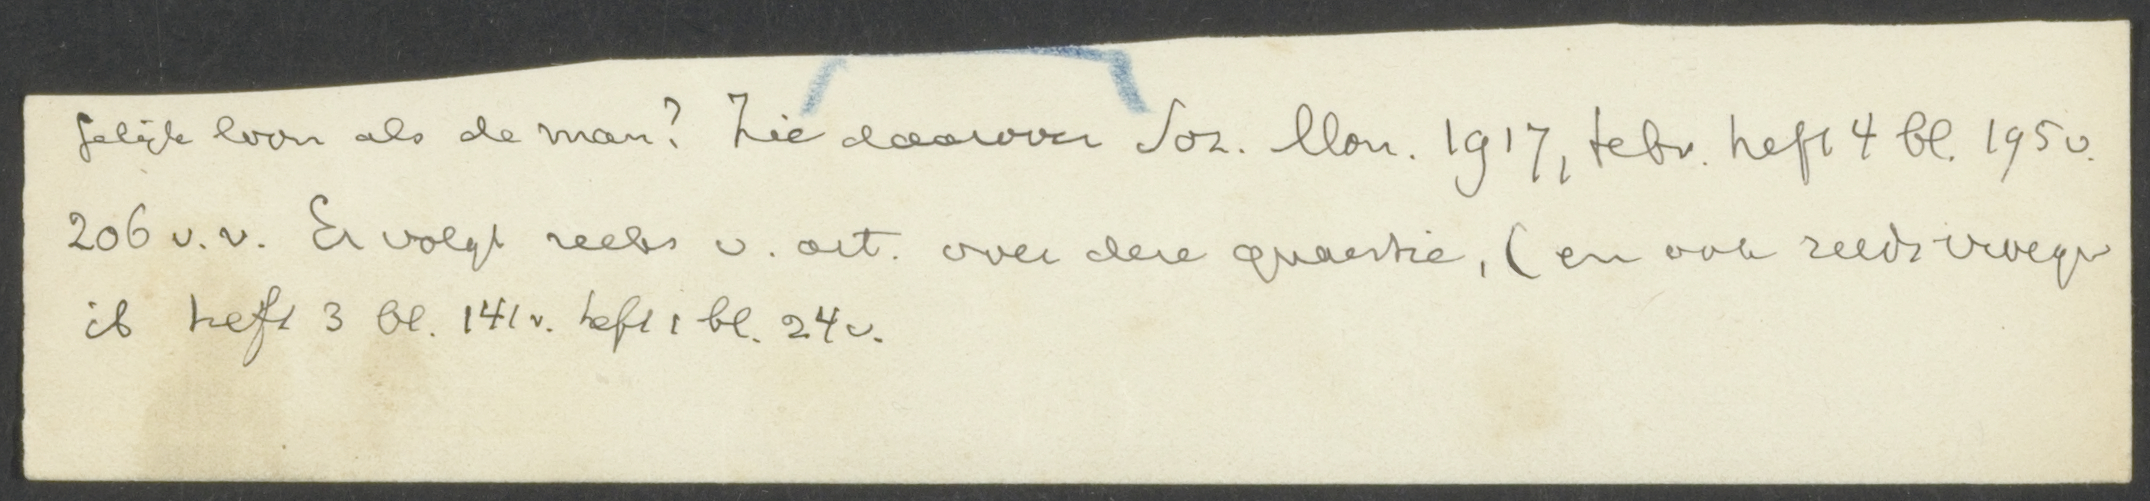 gelijk loon als de man? Zie daarover Soz. Mon. 1917, febr. heft 4 bl. 195 v.
206 v.v. Er volgt reeks v. art. over deze quaestie, (en ook reeds vroeger
ib heft 3 bl. 141 v. heft 1 bl. 24 v.